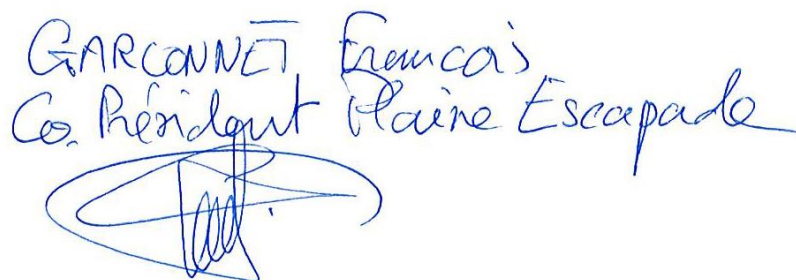 GARCONNET François
Co. Président Plaine Escapade